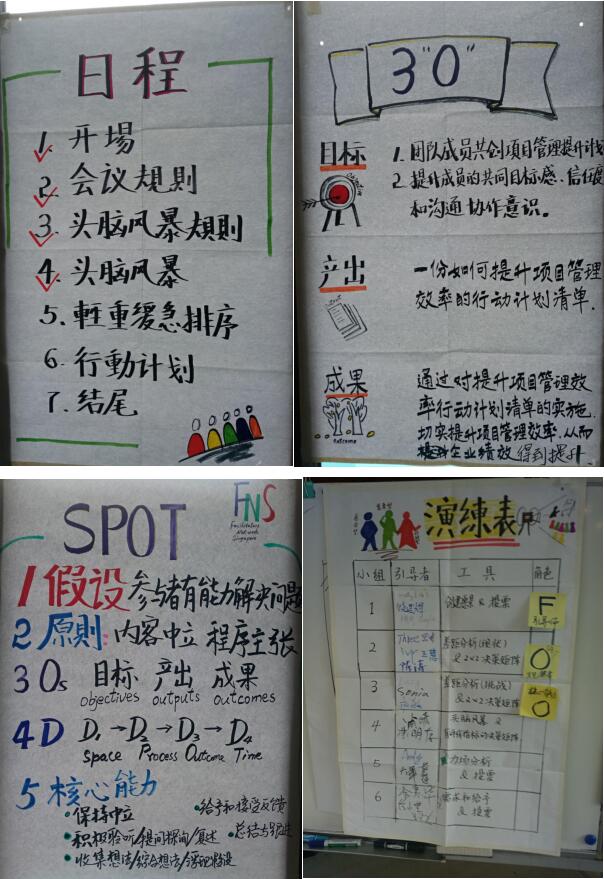 日程
1. 开場
2. 会议規則
3. 头脑风暴規則
4. 头脑风暴
5. 軽重缓急排序
6. 行動计划
7. 结尾
3"O"
目标
1. 团队成员共创项目管理提升计划
2. 提升成员的共同目标感、信任度
和沟通协作意识。
产出
一份如何提升项目管理
效率的行动计划清单.
成果
outcome
通过对提升项目管理效
率行动计划清单的实施,
切实提升项目管理效率,从而
企业绩效得到提升.
FNS
Facilitators
Network
Singapore
SPOT
1 假设 参与者有能力解决问题
2 原則: 内容中立 程序主张
3 Os 目标 产出 成果
objectives outputs outcomes
4D D1→D2→D3→D4
Space Process Outcome Time
5 核心能力
•保持中立
•给予和接受反馈
•积极聆听/提问探询/复述
•总结与跟进
•收集想法/综合想法/
演练表
小组 引导者 工具 角色
1 & 投票 F
2 差距分析(现状)
& 2×2决策矩阵 O
3 Sonia 差距分析(挑战)
& 2×2决策矩阵 O
4 头脑风暴 &
决策矩阵
5 力场分析
& 投票
6 需求和给予
& 投票